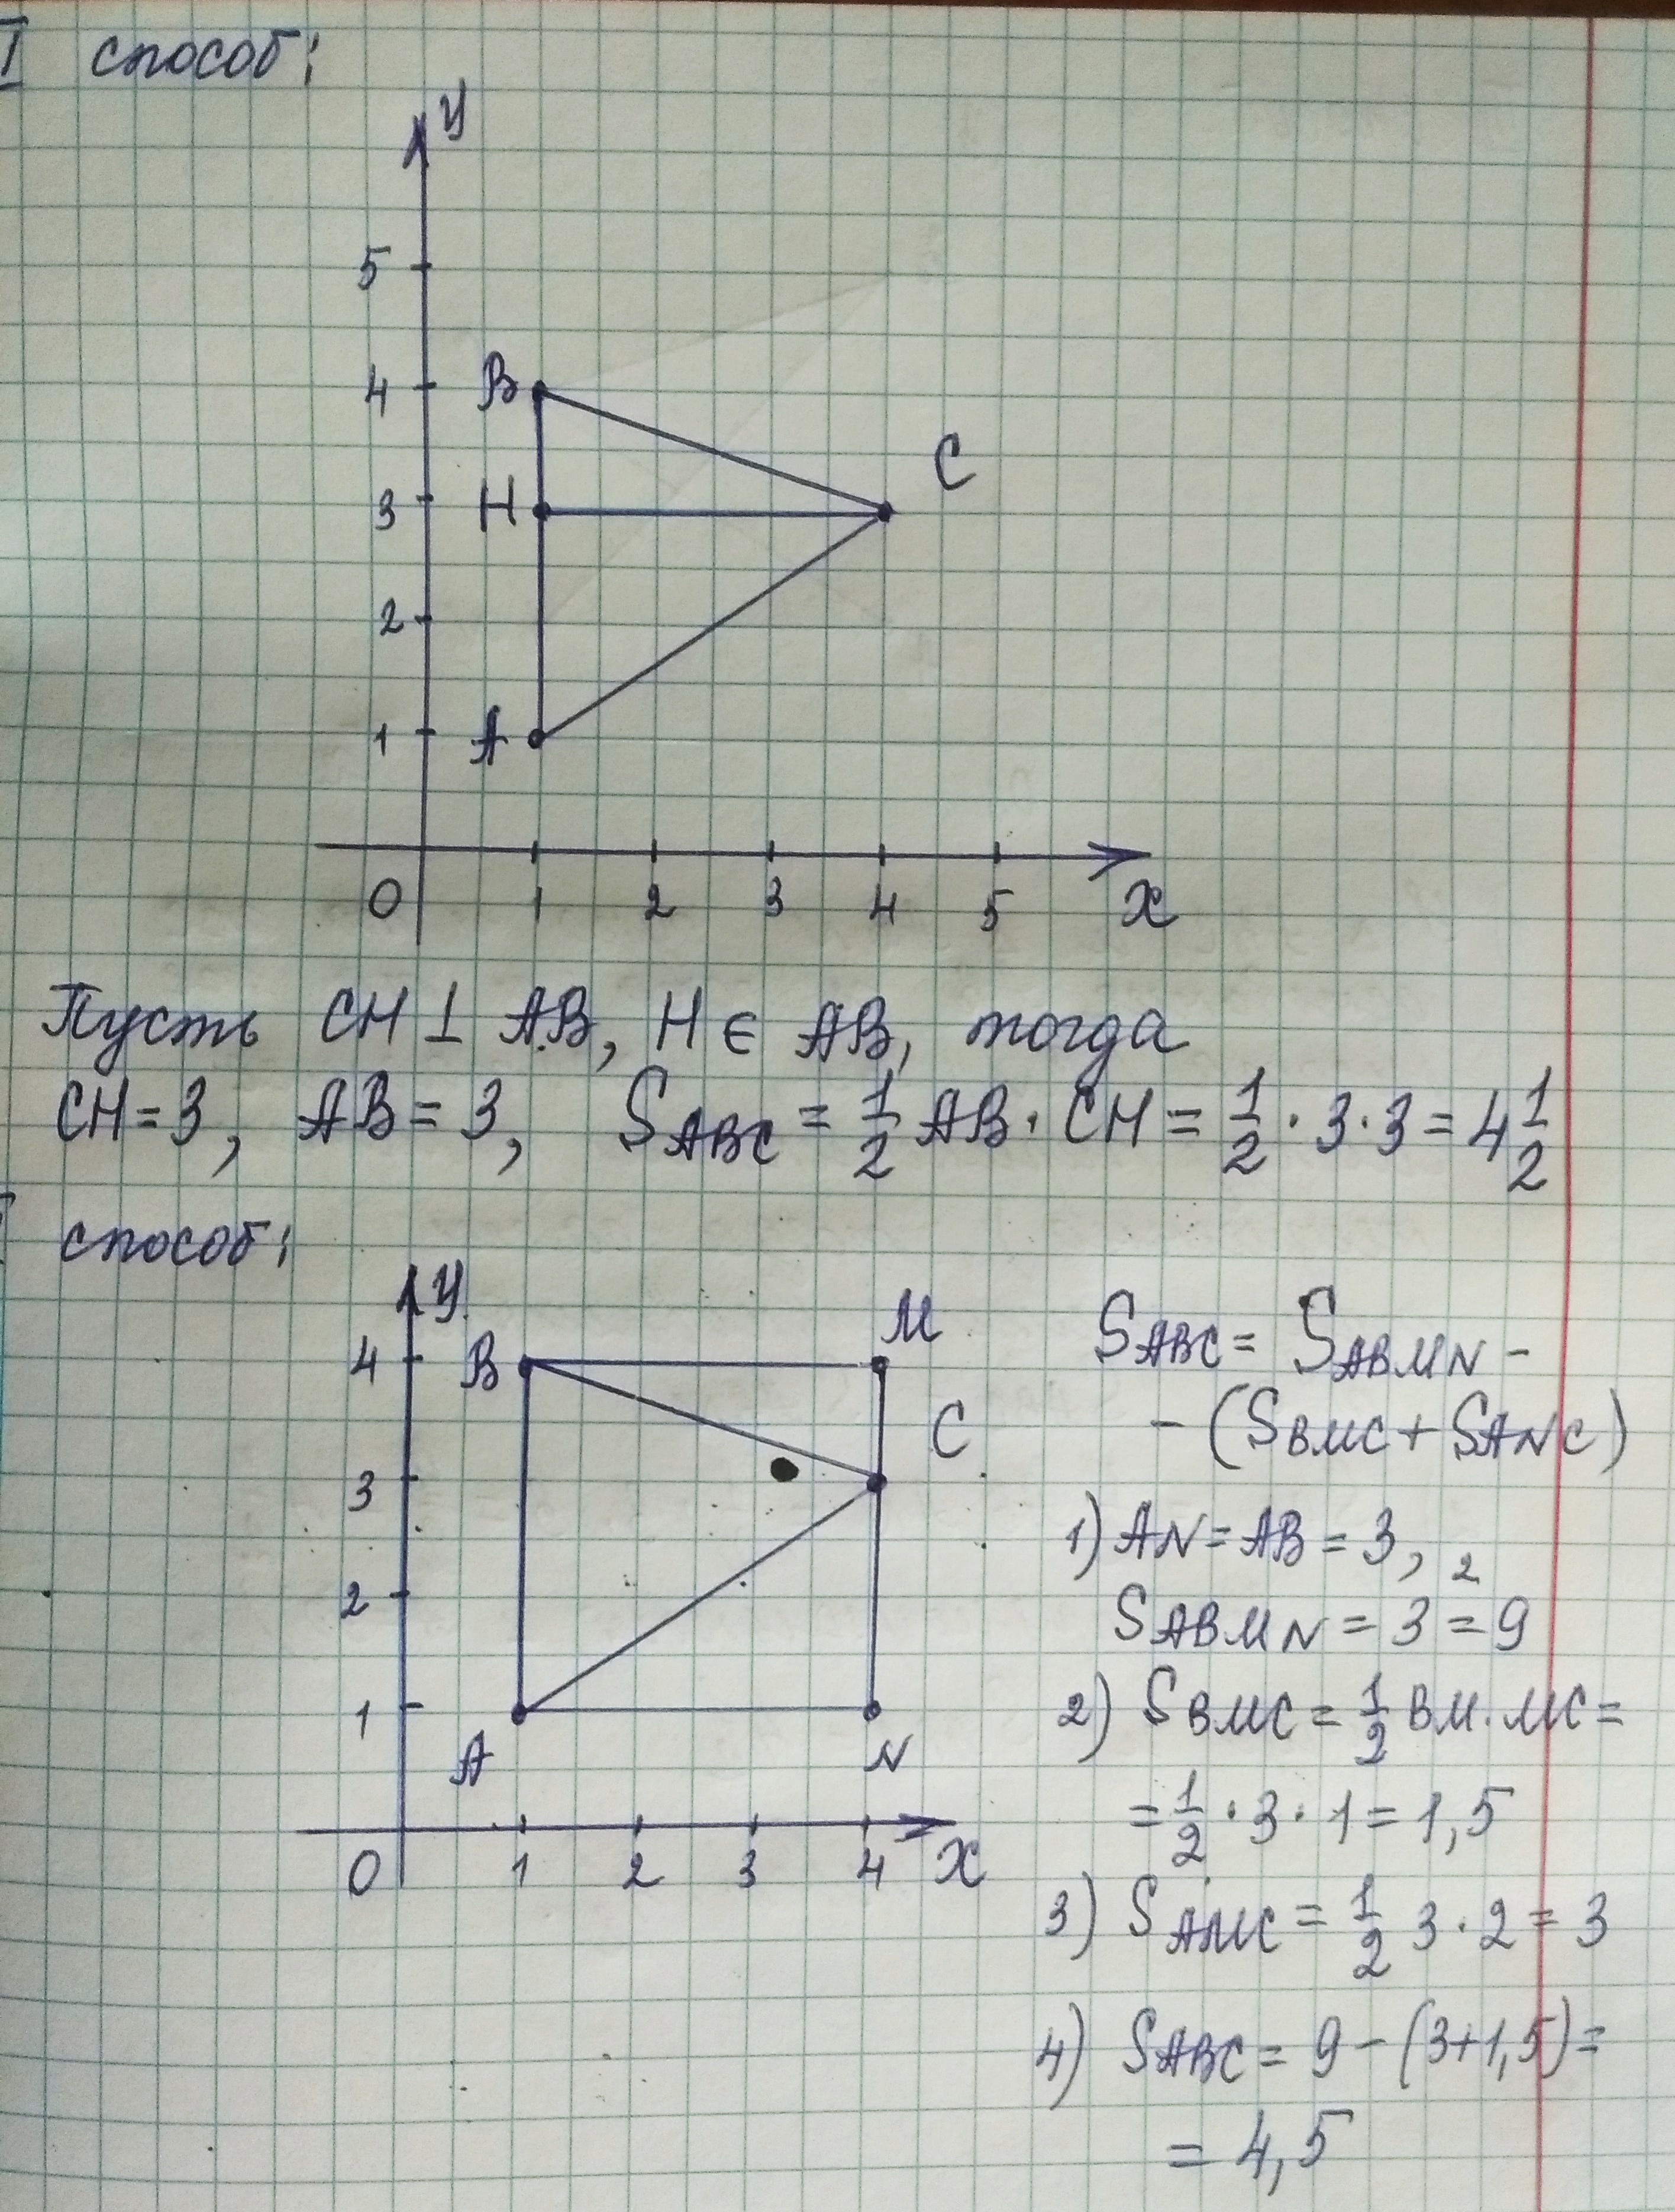 I способ:
y
5
4 B
C
3 H
2
1 A
0 1 2 3 4 5 x
Пусть CH ⊥ AB, H ∈ AB, тогда
CH = 3, AB = 3, S_ABC = 1/2 AB · CH = 1/2 · 3 · 3 = 4 1/2
способ:
y
4 B M
C
3
2
1
A N
0 1 2 3 4 x
S_ABC = S_ABMN -
- (S_BMC + S_ANC)
1) AN = AB = 3,
S_ABMN = 3² = 9
2) S_BMC = 1/2 BM · MC =
= 1/2 · 3 · 1 = 1,5
3) = 1/2 3 · 2 = 3
4) S_ABC = 9 - (3+1,5) =
= 4,5